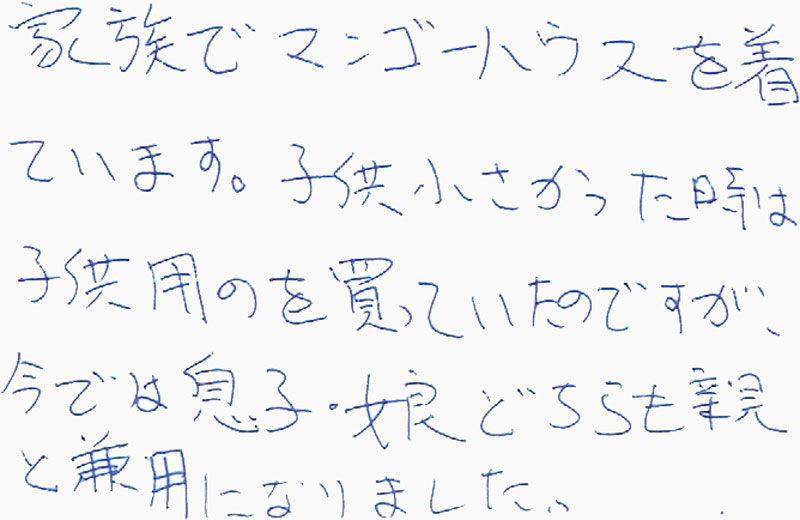 家族でマンゴーハウスを着
ています。子供小さかった時は
子供用のを買っていたのですが、
今では息子・娘どちらも親
と兼用になりました。